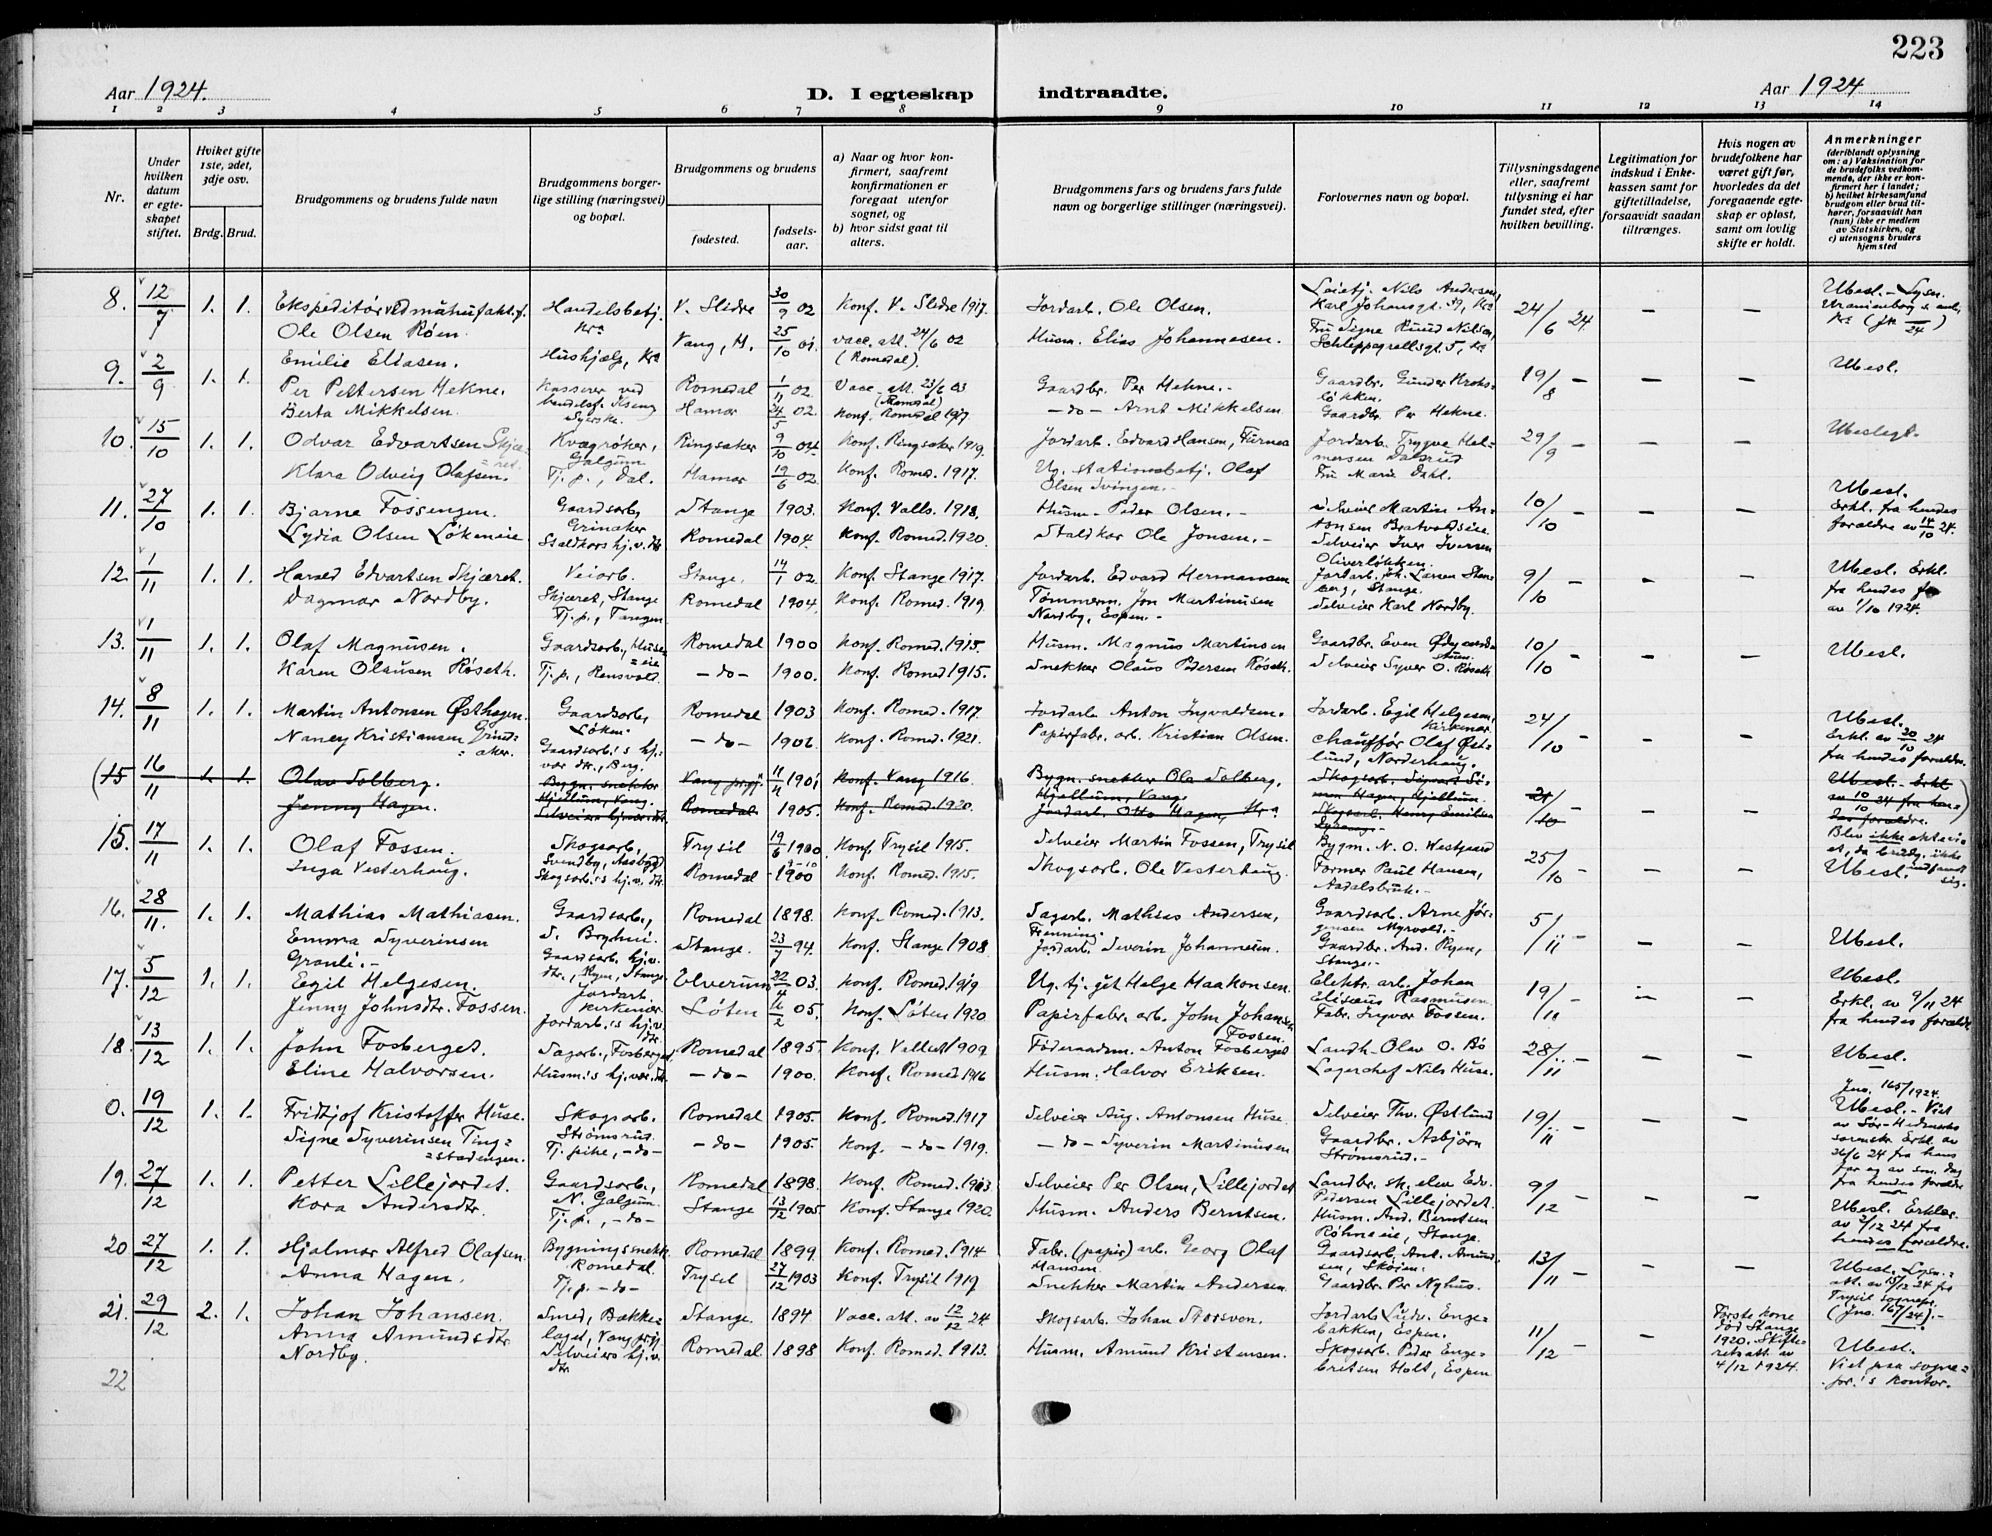 223
Aar 1924.
D. I egteskap indtraadte.
Aar 1924
1 2 3 4 5 6 7 8 9 10 11 12 13 14
Nr.
Under hvilken datum er egteskapet stiftet.
Hviket gifte 1ste, 2det, 3dje osv.
Brdg. Brud.
Brudgommens og brudens fulde navn
Brudgommens borgerlige stilling (næringsvei) og bopæl.
Brudgommens og brudens
fødested.
fødselsaar.
a) Naar og hvor konfirmert, saafremt konfirmationen er foregaat utenfor sognet, og
b) hvor sidst gaat til alters.
Brudgommens fars og brudens fars fulde navn og borgerlige stillinger (næringsvei).
Forlovernes navn og bopæl.
Tillysningsdagene eller, saafremt tillysning ei har fundet sted, efter hvilken bevilling.
Legitimation for indskud i Enkekassen samt for giftetilladelse, forsaavidt saadan tiltrænges.
Hvis nogen av brudefolkene har været gift før, hvorledes da det foregaaende egteskap er opløst, samt om lovlig skifte er holdt.
Anmerkninger
(deriblandt oplysning om: a) Vaksination for de brudefolks vedkommende, der ikke er konfirmert her i landet; b) hvilket kirkesamfund brudgom eller brud tilhører, forsaavidt han (hun) ikke er medlem av Statskirken, og c) utensogns bruders hjemsted
8. 12/7 1. 1. Ekspeditør ved manufakt.f. Ole Olsen Røen. Handelsbetj. Kra V. Slidre 30/9 02 Konf. V. Slidre 1917. Jordarb. Ole Olsen. Nils Andersen, Karl Johansgt. Kra 24/6 24 – – Ubesl. – Lysn. Uranienborg s. anh. Kra
Emilie Eliasen. Hushjælp, Kra Vang, H. 25/10 01. vacc. att. 24/6 02 (Romedal). Husm. Elias Johannesen. Fru Signe Ruud Nilsen, Schleppegrellsgt. 5, Kra
9. 2/9 1. 1. Per Pettersen Hekne. Kasserer ved Romedal 1/11 02. Vacc. att. 23/6 03 (Romedal) Gaardbr. Per Hekne. – Gaardbr. Gunder Krokløkken. 19/8 – – – Ubesl.
Berta Mikkelsen. Syerske. Hamar 24/5 02. Konf. Romedal 1917 – do – Arnt Mikkelsen. Gaardbr. Per Hekne.
10. 15/10 1. 1. Odvar Edvartsen Skjæret. Kvægrøkter, Galgum Ringsaker 9/10 04. Konf. Ringsaker 1919. Jordarb. Edvard Hansen, Furnes Jordarb. Trygve Helmersen Dalsrud 29/9 – – – Ubeslegt.
Klara Odveig Olafsen. Tj. p., Dal. Hamar 19/6 02. Konf. Romed. 1917. Ug. stationsbetj. Olaf Olsen Svingen. – Fru Marie Dahl.
11. 27/10 1. 1. Bjarne Fossengen. Gaardsarb, Grinaker Stange 1903. Konf. Valls. 1918. Husm. Peder Olsen. – Selveier Martin Antonsen 10/10 – – – Ubesl. Erkl. fra hendes forældre av 14/10 24.
Lydia Olsen Løkeneie Staldkars hj. v. dtr Romedal 1904. Konf. Romed. 1920. Staldkar Ole Jonsen. – Selveier Iver Iversen Oliverløkken.
12. 1/11 1. 1. Harald Edvartsen Skjæret. Veiarb. Skjæret, Stange Stange. 14/1 02. Konf. Stange 1917. Jordarb. Edvard Hermansen Jordarb. Joh. Larsen Stenberg, Stange. 9/10 – – – Ubesl. Erkl. fra hendes far av 1/10 1924.
Dagmar Nordby. Tj. p., Tangen Romedal 1904. Konf. Romed. 1919. Tømmerm. Jon Martinusen Nordby, Espen. – Selveier Karl Nordby.
13. 1/11 1. 1. Olaf Magnusen. Gaardsarb., Huseeie Romedal 1900 Konf. Romed. 1915. Husm. Magnus Martinsen Gaardbr. Even 10/10 – – – Ubesl.
Karen Olausen Røseth. Tj. p., Rensvold. – do – 1900. Konf. Romed 1915. Snekker Olaus Pedersen Røseth. Selveier Syver O. Røseth
14. 8/11 1. 1. Martin Antonsen Østhagen. Gaardsarb., Løken. Romedal 1903 Konf. Romed. 1917. Jordarb. Anton Ingvaldsen. Jordarb. Egil Helgesen, Kirkenær 24/10 – – – Ubesl. Erkl. av 30/10 24 fra hendes forældre.
Nancy Kristiansen Grindaker. Gaardsarb.'s hj. vær. dtr., Berg. – do – 1906. Konf. Romed. 1921. Papirfabr. arb. Kristian Olsen. chauffør Olaf Østlund, Nordenhaug.
(15 16/11 1. 1. Olav Solberg. Bygn. snekker Hjellum, Vang. Vang prgj. 11/4 1901 Konf. Vang 1916 Bygn. snekker Ole Solberg, Hjellum, Vang. Skogsarb. Sigvart Simen Hagen, Hjellum. 21/10 – – – Ubesl. – Erkl. av 10/10 24 fra hendes forældre.)
Jenny Hagen. Selveiers hj. vær. dtr. Romedal 1905. Konf. Romed. 1920. Jordarb. Otto Hagen, Kra Skogsarb. Blev ikke ektevi-et, da brudg. ikke indfandt sig.
15. 17/11 1. 1. Olaf Fossen. Skogsarb., Svendby, Aasbygd Trysil 19/6 1900. Konf. Trysil 1915. Selveier Martin Fossen, Trysil Bygm. N. O. Westgaard 25/10 – – – Ubesl.
Inga Vesterhaug. Skogsarb.'s hj. v. dtr. Romedal 1900 Konf. Romed. 1915. Skogsarb. Ole Vesterhaug. Former Paul Hansen, Aadalsbruk. –
16. 28/11. 1. 1. Mathias Mathiasen. Gaardsarb., S. Bryhni. Romedal 1898. Konf. Romed. 1913. Sagarb. Mathias Andersen, Frenning. Gaardsarb. Arne Jørgensen Myrvold. – 5/11 – – – Ubesl.
Emma Syverinsen Granli. – Gaardsarb. hj. v. dtr., Ryen, Stange Stange. 23/7 94. Konf. Stange 1908 Jordarb. Severin Johannesen. Gaardbr. And. Ryen, Stange. –
17. 5/12 1. 1. Egil Helgesen. Jordarb. Kirkenær Elverum 22/4 03. Konf. Romed 1919 Ug. tj. gjt Helge Haakonsen. Elektr. arb. Johan Eliseus Rasmusen. 19/11 – – – Ubesl. Erkl. av 9/11 24 fra hendes forældre
Jenny Johnsdtr. Fossen. Jordarb.'s hj. v. dtr. Løten 16/2 05. Konf. Løten 1920. Papirfabr. arb. John Johansen Fossen. Fabr. Ingvar Fossen.
18. 13/12 1. 1. John Fosberget. Sagarb., Fosberget Romedal 1895 Konf. Vallset 1909. Føderaadsm. Anton Fosberget Landh. Olav O. Bö 28/11 – – – Ubesl.
Eline Halvorsen. Husm.'s hj. vær. dtr. – do – 1900. Konf. Romed 1916 Husm. Halvor Eriksen. Lagerchef Nils Huse.
0. 19/12 1. 1. Fridtjof Kristoffer Huse. Skogsarb. Strømsrud. Romedal 1905. Konf. Romed 1917 Selveier Aug. Antonsen Huse Selveier Thv. Østlund 19/11 – – – Jno. 165/1924. Ubesl. – Viet av Sør-Hedmarks sorenskr. Erkl. av 26/6 24 fra hans far og av sm. dag fra hendes forældre
Signe Syverinsen Tingstadengen. Tj. pike, – do – – do – 1905. Konf. – do – 1919. – do – Syverin Martinusen Gaardbr. Asbjørn Strømsrud. –
19. 27/12 1. 1. Petter Lillejordet. Gaardsarb., N. Galgum. Romedal 1898. Konf. Romed. 1913 Selveier Per Olsen, Lillejordet Landbr. sk. elev Edv. Pedersen Lillejordet. 9/12 – – – Ubesl. Erklær. av 2/12 24 fra hendes forældre.
Kora Andersdtr. Tj. p., – do – Stange 13/12 1905 Konf. Stange 1920. Husm. Anders Berntsen. Husm. And. Berntsen Røhneeie, Stange.
20 27/12 1. 1. Hjalmar Alfred Olafsen. Bygningssnekk. Romedal. Romedal 1899. Konf. Romed. 1914 Fabr. (papir) arb. Georg Olaf Hansen. Gaardsarb. Ant. Amundsen, Skøien. 13/11 – – – Ubesl. Lysn.att. av 15/12 24 fra Trysil sognepr. (Jno. 167/24). –
Anna Hagen. Tj. p. – do – Trysil 27/12 1903 Konf. Trysil 1919 Snekker Martin Andersen. Gaardbr. Per Nyhus.
21. 29/12 2. 1. Johan Johansen. Smed, Bakkelaget, Vang prgj Stange 1894 Vacc. att. av 12/12 24 Skogsarb. Johan Storsveen. Jordarb. Ludv. Engebakken, Espen. 11/12 – – Første kone død Stange 1920. Skifteretsatt. av 4/12 1924. Ubesl. Viet paa sognepr.'s kontor.
Anna Amundsdtr Nordby. Selveiers hj. v. dtr. Romedal 1898 Konf. Romed. 1913. Husm. Amund Kristensen. Skogsarb. Peder Engebretsen Holt, Espen
22